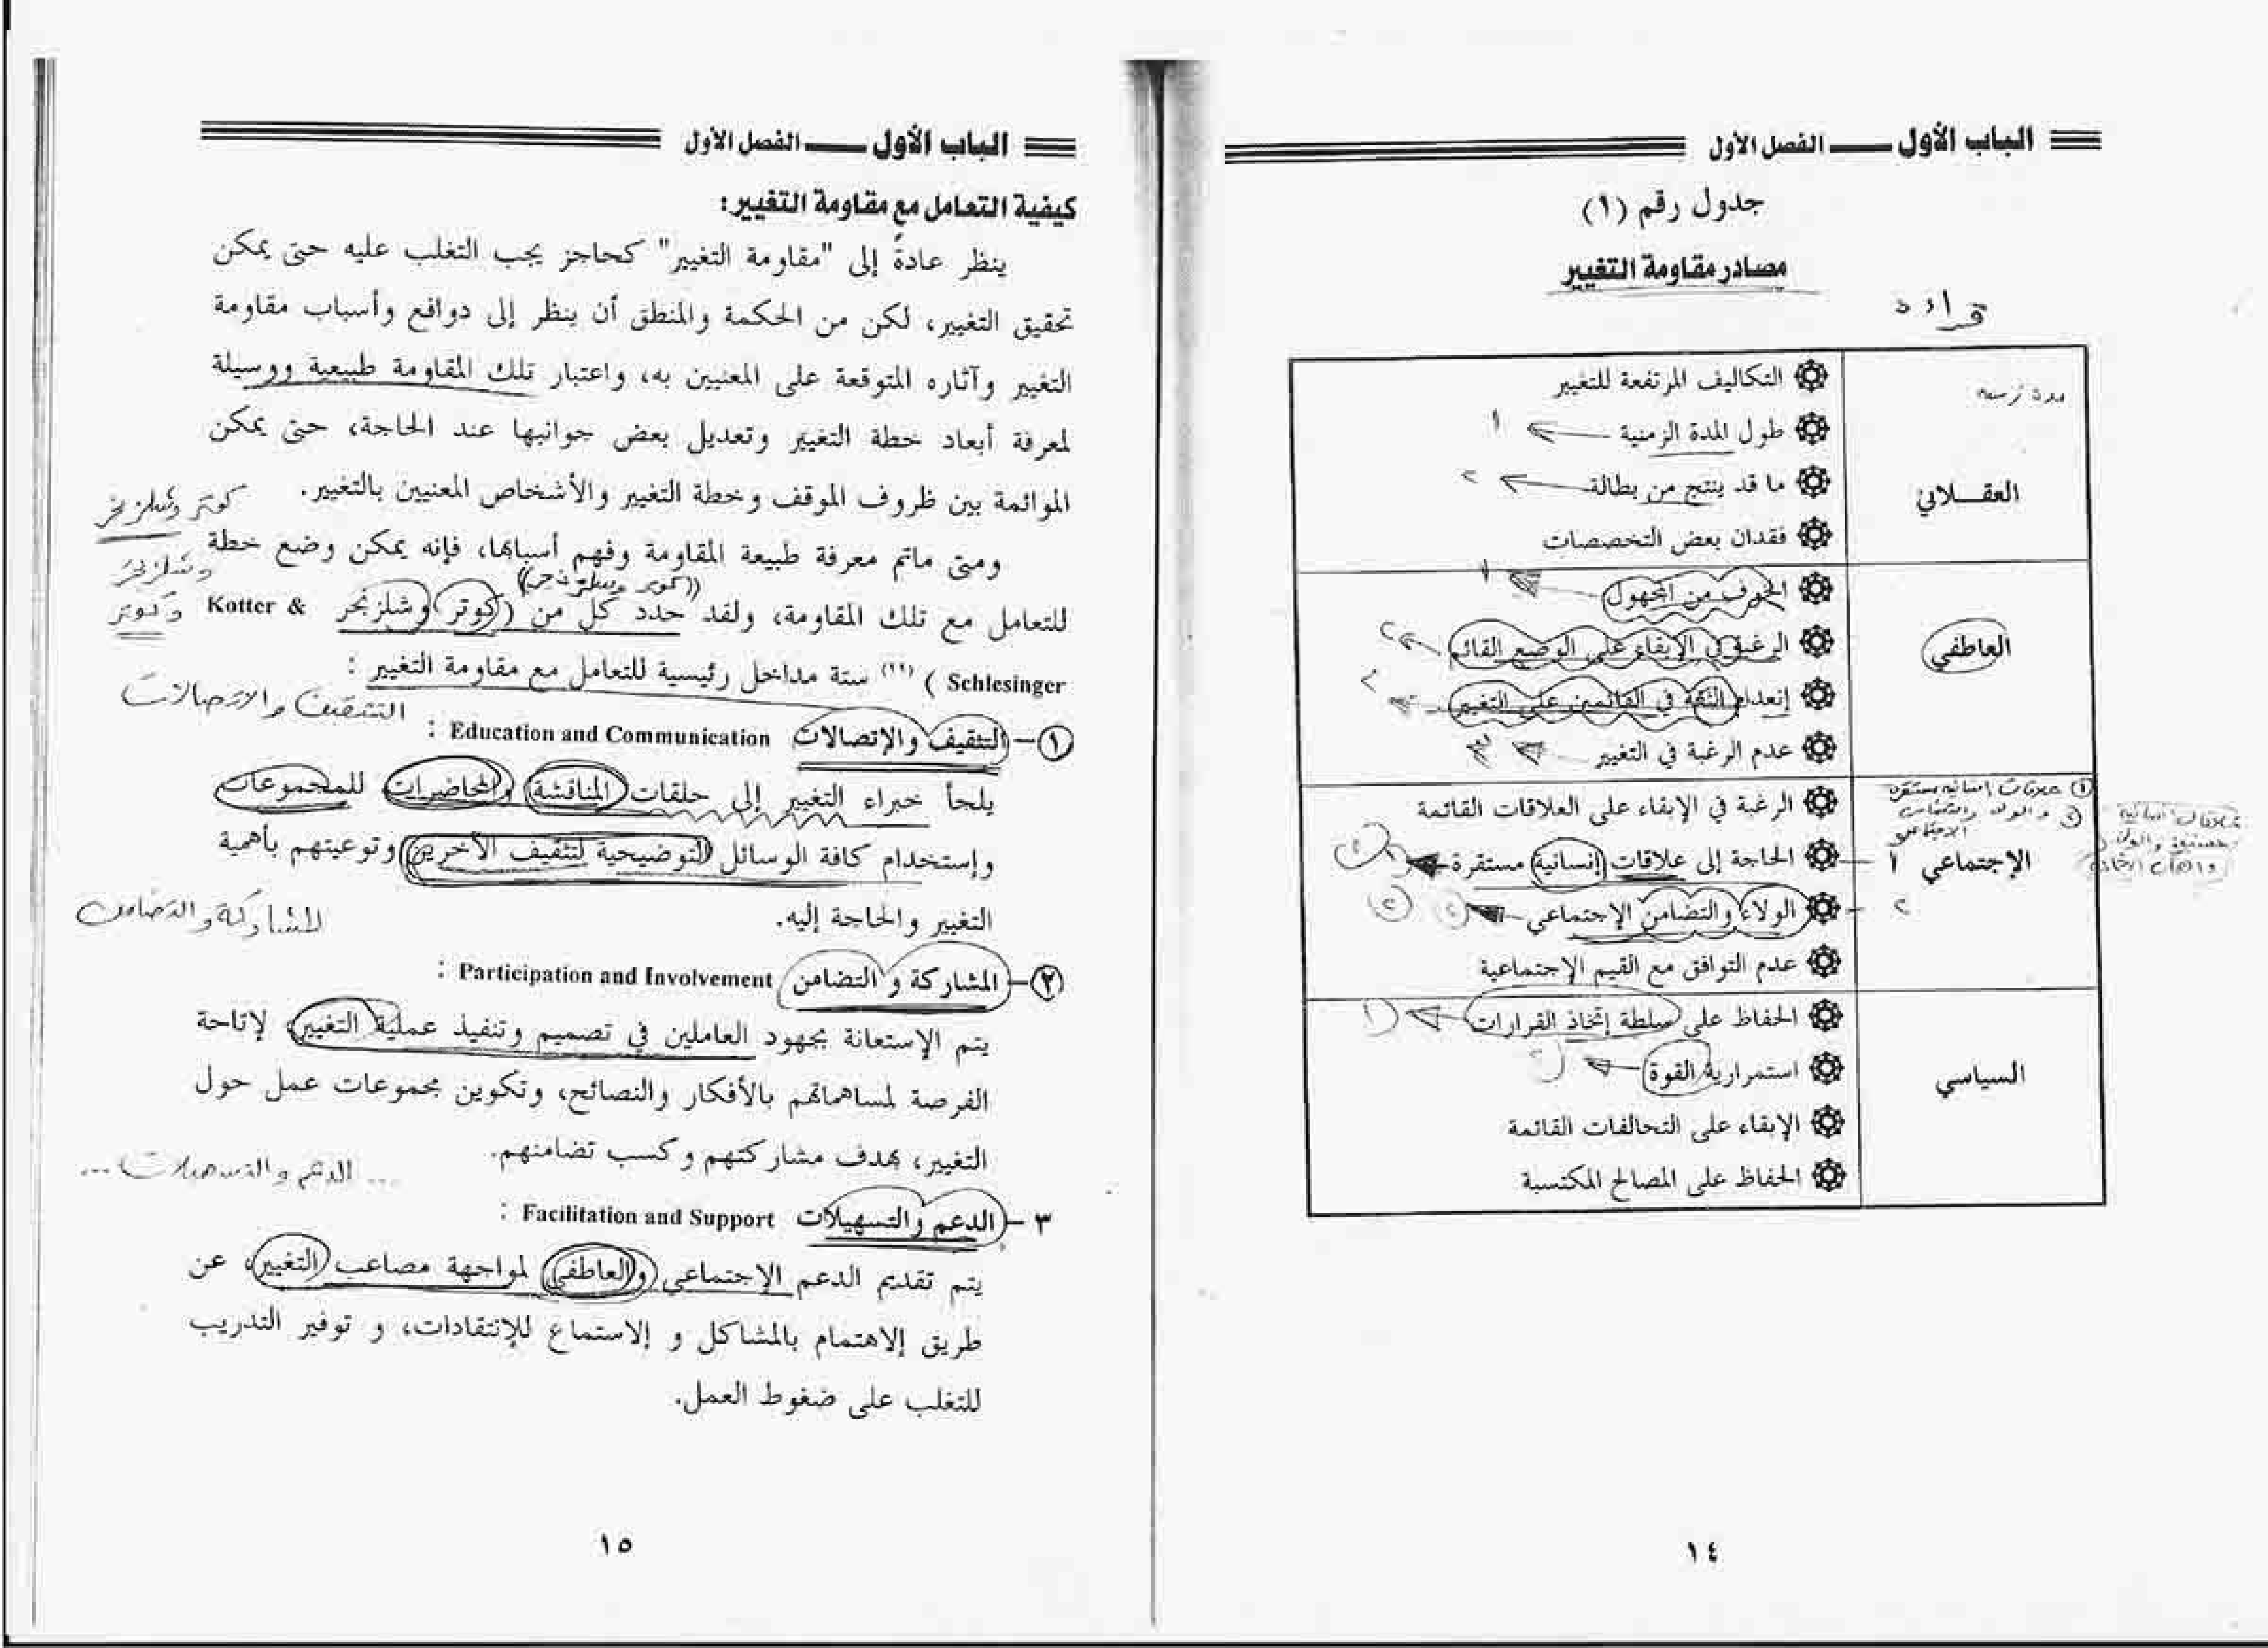 الباب الأول — الفصل الأول
جدول رقم (١)
مصادر مقاومة التغيير
قراءة
العقلاني
التكاليف المرتفعة للتغيير
طول المدة الزمنية ١
ما قد ينتج من بطالة ٢
فقدان بعض التخصصات
العاطفي
الخوف من المجهول ١
الرغبة في الإبقاء على الوضع القائم ٢
إنعدام الثقة في القائمين على التغيير
عدم الرغبة في التغيير
① علاقات انسانية مستقره
② والولاء والتضامن
الاجتماعي
الإجتماعي
الرغبة في الإبقاء على العلاقات القائمة
١ الحاجة إلى علاقات إنسانية مستقرة
٢ الولاء والتضامن الإجتماعي
عدم التوافق مع القيم الإجتماعية
السياسي
الحفاظ على سلطة إتخاذ القرارات
استمرارية القوة
الإبقاء على التحالفات القائمة
الحفاظ على المصالح المكتسبة
١٤
الباب الأول — الفصل الأول
كيفية التعامل مع مقاومة التغيير:
ينظر عادةً إلى "مقاومة التغيير" كحاجز يجب التغلب عليه حتى يمكن
تحقيق التغيير، لكن من الحكمة والمنطق أن ينظر إلى دوافع وأسباب مقاومة
التغيير وآثاره المتوقعة على المعنيين به، واعتبار تلك المقاومة طبيعية ووسيلة
لمعرفة أبعاد خطة التغيير وتعديل بعض جوانبها عند الحاجة، حتى يمكن
الموائمة بين ظروف الموقف وخطة التغيير والأشخاص المعنيين بالتغيير.
كوتر وشلزنجر
ومتى ماتم معرفة طبيعة المقاومة وفهم أسبابها، فإنه يمكن وضع خطة
وشلزنجر
((كوتر وشلزنجر))
للتعامل مع تلك المقاومة، ولقد حدد كل من (كوتر وشلزنجر Kotter &
وكوتر
Schlesinger ) (١١) ستة مداخل رئيسية للتعامل مع مقاومة التغيير :
التثقيف والاتصالات
١- التثقيف والإتصالات Education and Communication :
يلجأ خبراء التغيير إلى حلقات المناقشة والمحاضرات للمجموعات
وإستخدام كافة الوسائل التوضيحية لتثقيف الأخرين وتوعيتهم بأهمية
التغيير والحاجة إليه.
المشاركة والتضامن
٢- المشاركة والتضامن Participation and Involvement :
يتم الإستعانة بجهود العاملين في تصميم وتنفيذ عملية التغيير، لإتاحة
الفرصة لمساهماتهم بالأفكار والنصائح، وتكوين مجموعات عمل حول
التغيير، بهدف مشاركتهم وكسب تضامنهم.
... الدعم والتسهيلات ...
٣- الدعم والتسهيلات Facilitation and Support :
يتم تقديم الدعم الإجتماعي والعاطفي لمواجهة مصاعب التغيير، عن
طريق الاهتمام بالمشاكل و الاستماع للإنتقادات، و توفير التدريب
للتغلب على ضغوط العمل.
١٥